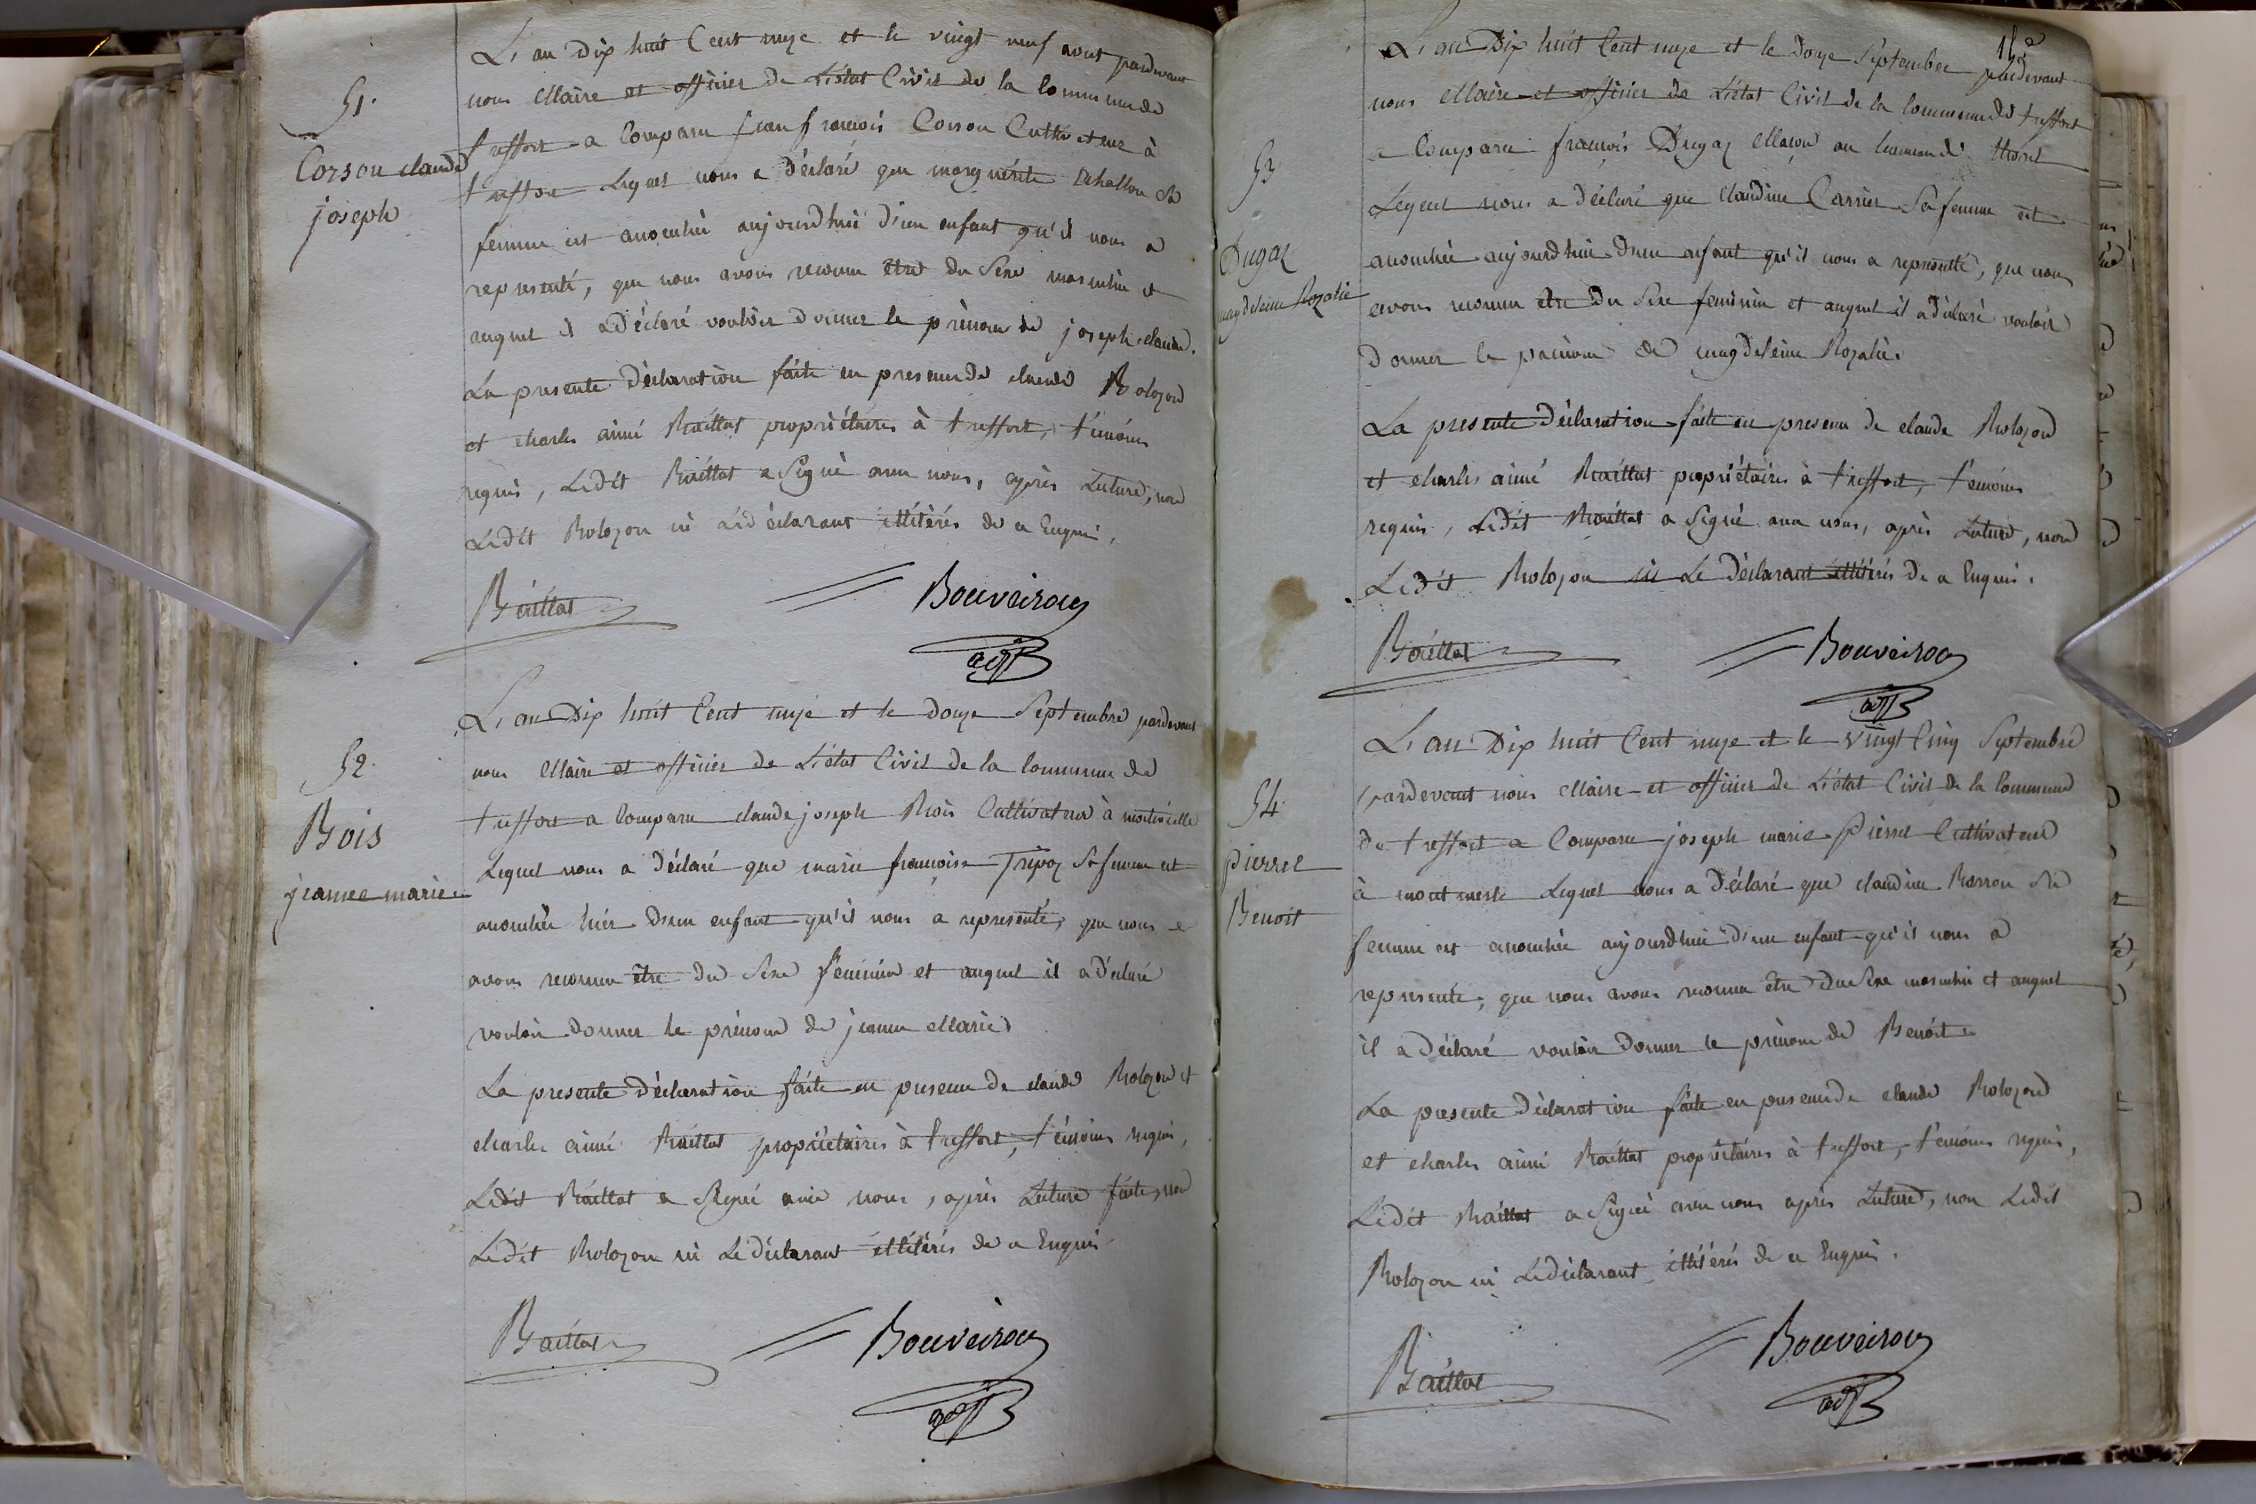 51.
Corson claude
joseph
L'an Dix huit Cent onze et le vingt neuf aout pardevant
nous Maire et officier de L'état Civil de la Commune de
treffort a Comparu jean françois Corson Cultivateur à
treffort Lequel nous a déclaré que marguerite Chatton sa
femme est accouchée aujourdhui d'un enfant qu'il nous a
representé, que nous avons reconnu être du Sexe masculin et
auquel il a déclaré vouloir donner le prénom de joseph claude.
La presente déclaration faite en presence de claude Bolozon
et charles aimé Baillat propriétaires à treffort, témoins
requis, Ledit Baillat a Signé avec nous, après Lecture, non
Ledit Bolozon ni Le déclarant illitérés de ce Enquis.
Baillat Bouveirou
52.
Bois
jeanne marie
L'an Dix huit Cent onze et le douze Septembre pardevant
nous Maire et officier de L'état Civil de la Commune de
treffort a Comparu claude joseph Bois Cultivateur à montiselle
Lequel nous a déclaré que marie françoise Tripoz Sa femme est
accouchée hier d'un enfant qu'il nous a representé, que nous
avons reconnu être du Sexe féminin et auquel il a déclaré
vouloir donner le prénom de jeanne Marie
La presente déclaration faite en presence de claude Bolozon et
charles aimé Baillat propriétaires à treffort, témoins requis,
Ledit Baillat a Signé avec nous, après Lecture faite, non
Ledit Bolozon ni Le déclarant illitérés de ce Enquis
Baillat Bouveirou
53
Dugaz
magdeleine Rozalie
L'an Dix huit Cent onze et le douze Septembre pardevant
nous Maire et officier de L'état Civil de la Commune de treffort
a Comparu françois Dugaz Maçon au hameau de
Lequel nous a déclaré que claudine Carrier Sa femme est
accouchée aujourdhui d'un enfant qu'il nous a representé, que nous
avons reconnu être du Sexe feminin et auquel il a déclaré vouloir
donner le prénom de magdeleine Rozalie.
La presente déclaration faite en presence de claude Bolozon
et charles aimé Baillat propriétaires à treffort, témoins
requis, Ledit Baillat a Signé avec nous, après Lecture, non
Ledit Bolozon ni Le déclarant illitérés de ce Enquis.
Baillat Bouveirou
54
pierrel
Benoit
L'an Dix huit Cent onze et le vingt Cinq Septembre
pardevant nous Maire et officier de L'état Civil de la Commune
de treffort a Comparu joseph marie Pierrel Cultivateur
à montmerle Lequel nous a déclaré que claudine Barron Sa
femme est accouchée aujourdhui d'un enfant qu'il nous a
representé, que nous avons reconnu être du Sexe masculin et auquel
il a déclaré vouloir donner le prénom de Benoit
La presente déclaration faite en presence de claude Bolozon
et charles aimé Baillat propriétaires à treffort, témoins requis,
Ledit Baillat a Signé avec nous après Lecture, non Ledit
Bolozon ni Le déclarant illitérés de ce Enquis.
Baillat Bouveirou